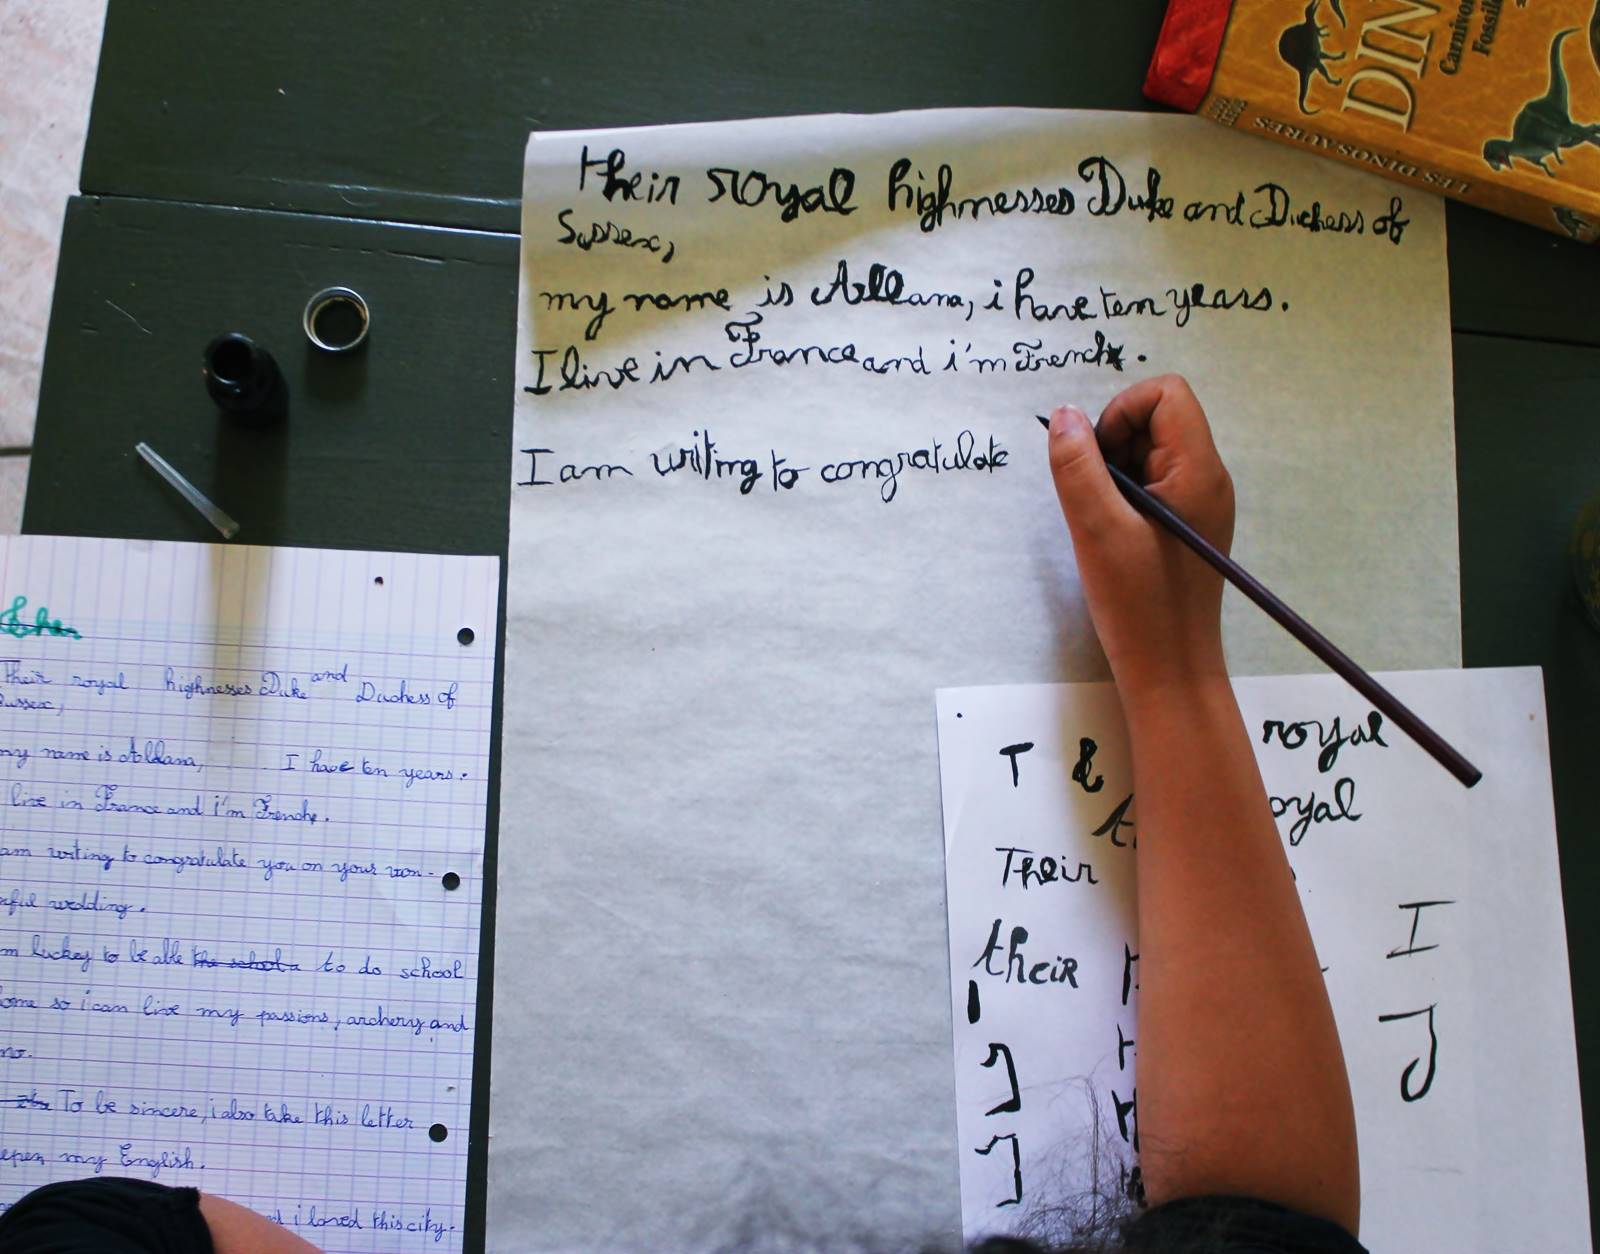 DIN
Carnivo
Fossil
LES DINOSAURES
their royal highnesses Duke and Duchess of
Sussex,
my name is Alldana, i have ten years.
I live in France and i'm French.
I am writing to congratulate
Their royal highnesses Duke and Duchess of
Sussex,
my name is Alldana, I have ten years.
live in France and i'm French.
am writing to congratulate you on your won-
rful wedding.
m luckey to be able the school a to do school
ome so i can live my passions, archery and
no.
To be sincere, i also take this letter
epen my English.
d i loved this city.
T & royal
oyal
Their
their
I
J